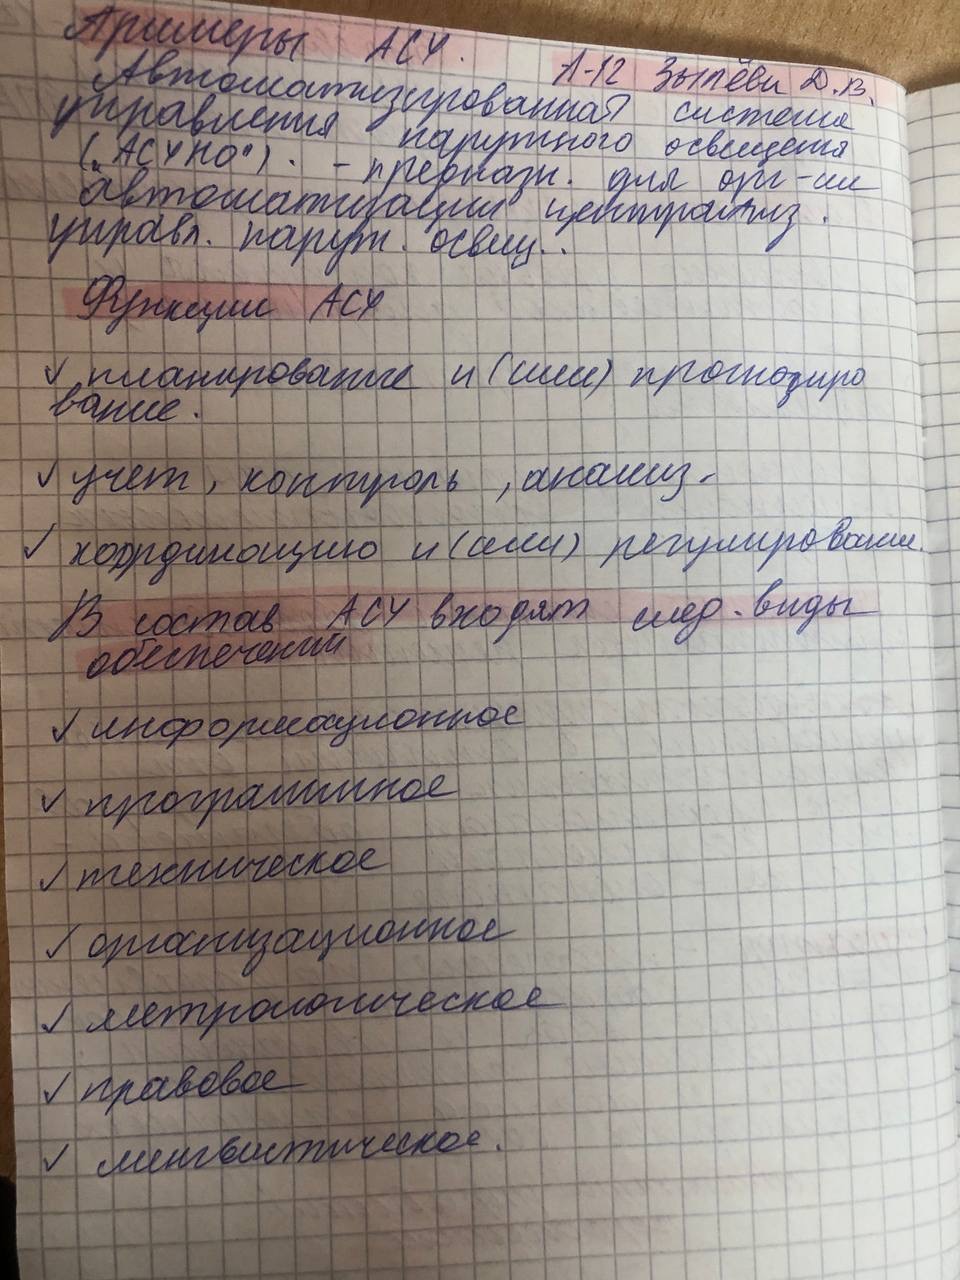 Примеры АСУ.
А-12 Зы Д.В.
Автоматизированная система
управления наружного освещения
("АСУНО"). - предназн. для орг-ии
автоматизации централиз.
управл. наруж. освещ..
Функции АСУ
✓ планирование и (или) прогнозиро
вание.
✓ учет, контроль, анализ.
✓ координацию и (или) регулирование.
В состав АСУ входят след. виды
обеспечений
✓ информационное
✓ программное
✓ техническое
✓ организационное
✓ метрологическое
✓ правовое
✓ лингвистическое.